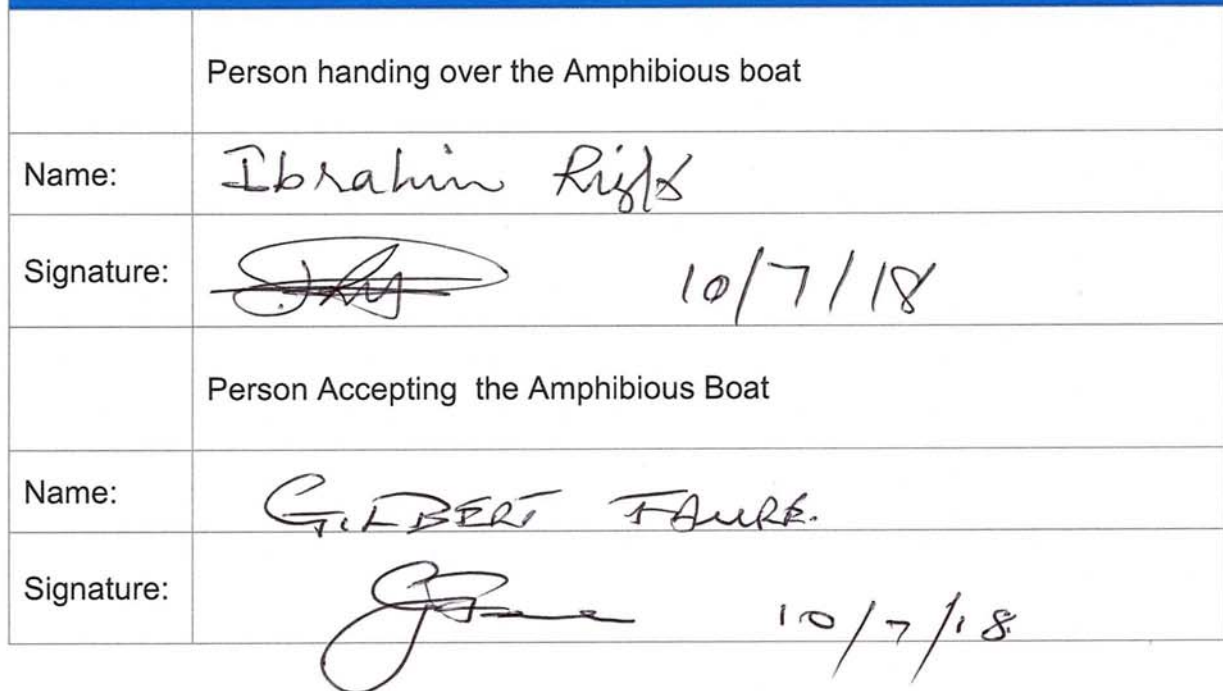 Person handing over the Amphibious boat
Name: Ibrahim
Signature: 10/7/18
Person Accepting the Amphibious Boat
Name: GILBERT FAURE.
Signature: 10/7/18